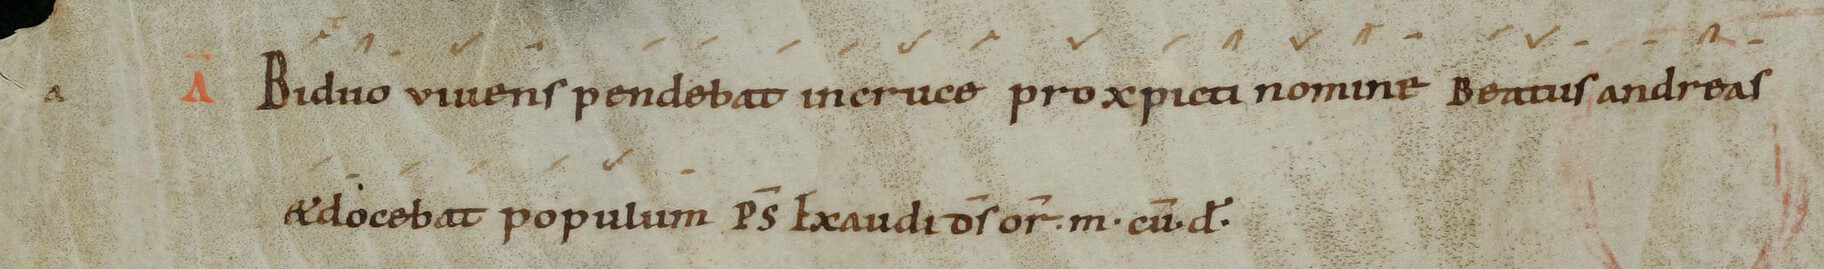 a Ā Biduo viuens pendebat incruce pro xpicti nomine Beatus andreas
&docebat populum PS̄ Exaudi d̄s or̄·m·cū·d̄·